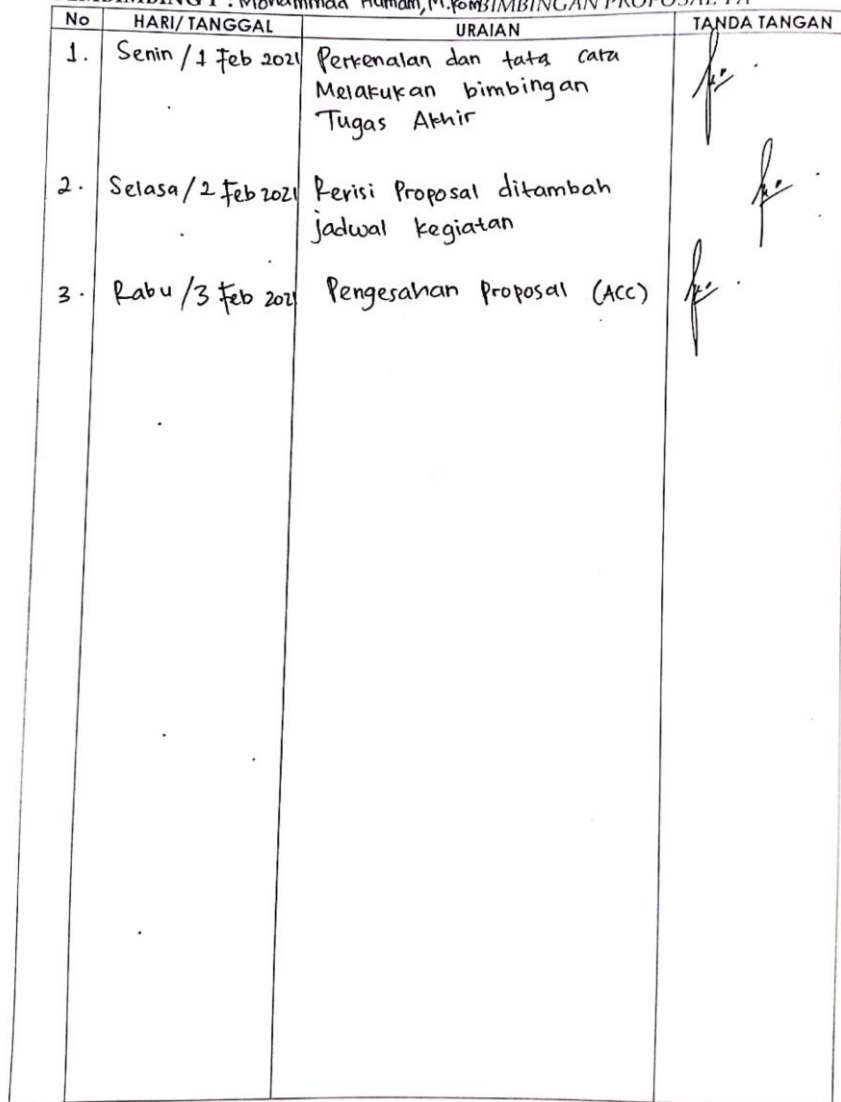 PEMBIMBING I : Mohammad Humam, M.Kom BIMBINGAN PROPOSAL TA
No HARI/TANGGAL URAIAN TANDA TANGAN
1. Senin / 1 Feb 2021 Perkenalan dan tata cara
Melakukan bimbingan
Tugas Akhir
2. Selasa / 2 Feb 2021 Revisi Proposal ditambah
jadwal kegiatan
3. Rabu / 3 Feb 2021 Pengesahan Proposal (ACC)